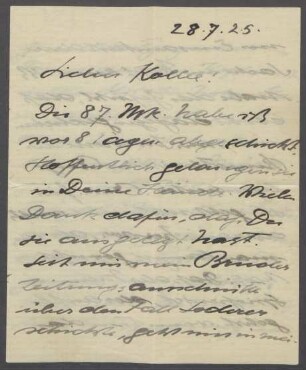 28.7.25.
Lieber Kolbe!
Die 87 Mk. habe ich
vor 8 Tagen abgeschickt.
Hoffentlich gelangen sie
in Deine Hände. Vielen
Dank dafür, dass Du
sie ausgelegt hast.
Seit mir mein Bruder
Zeitungsausschnitte
über den Fall Lederer
schickte, geht mir in mei-